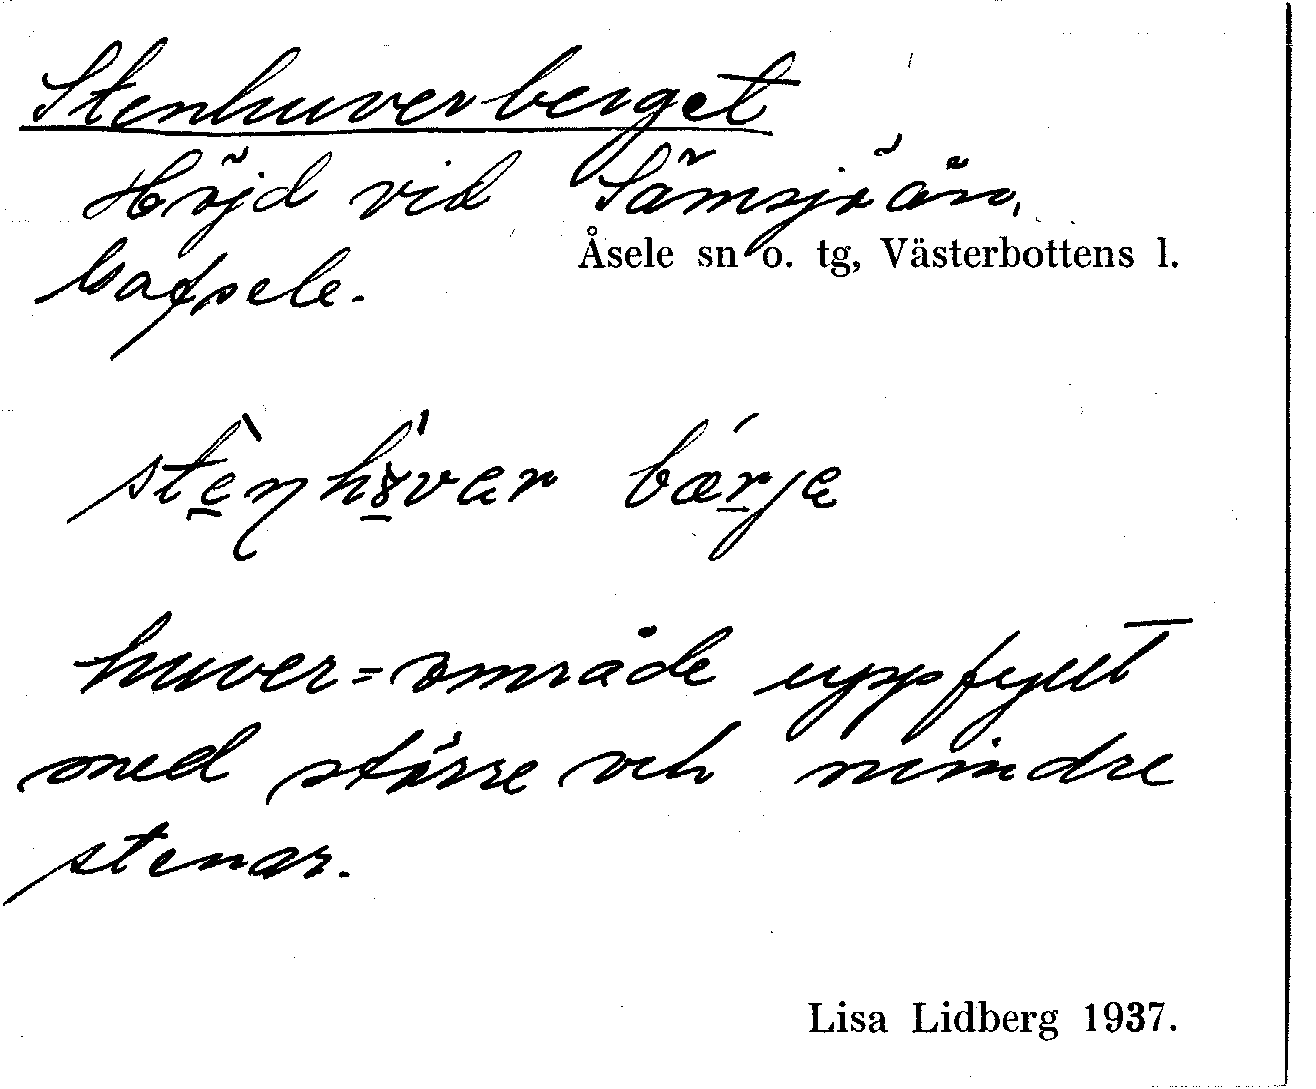 Stenhuverberget
Höjd vid Sämsjöån,
Åsele sn o. tg, Västerbottens l.
Gafsele.
bærje
huver = område uppfyllt
med större och mindre
stenar.
Lisa Lidberg 1937.